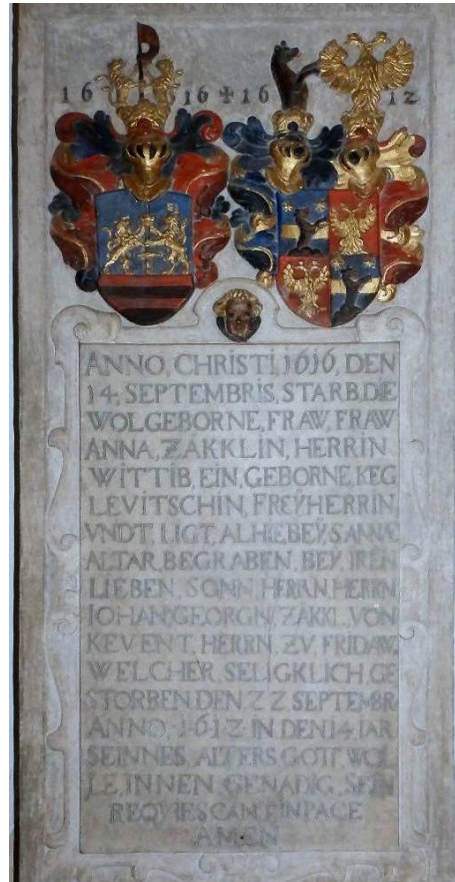 16 16 ✤ 16 12
ANNO, CHRISTI, 1616, DEN
14, SEPTEMBRIS, STARB, DIE
WOLGEBORNE, FRAW, FRAW
ANNA, ZAKKLIN, HERRIN
WITTIB, EIN, GEBORNE, KEG
LEVITSCHIN, FREŸHERRIN
VNDT, LIGT, ALHIE, BEY, S ANNÆ
ALTAR, BEGRABEN, BEY, IREN
LIEBEN, SONN, HERRN HERRN
IOHAN, GEORGN, ZÄKKL, VON
KEVENT, HERRN, ZV, FRIDAW,
WELCHER, SELIGKLICH, GE
STORBEN DEN 22 SEPTEMBR
ANNO, 1612 IN DEN 14 IAR
SEINNES, ALTERS, GOTT, WOL
LE, INNEN, GENADIG, SEIN
REQVIESCANT, IN PACE
AMEN